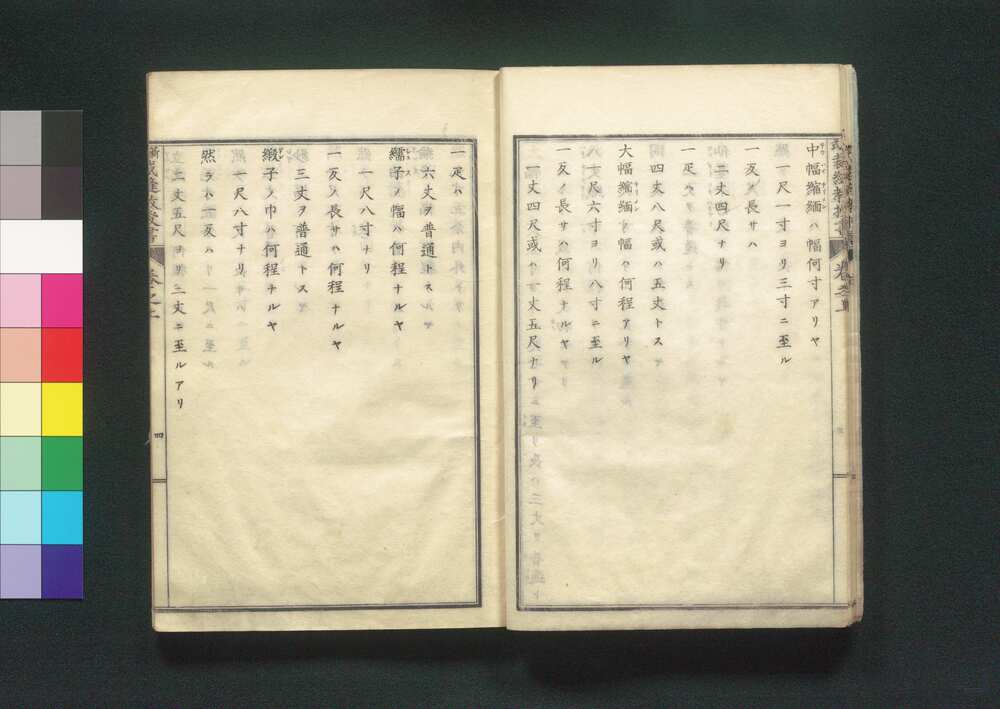 中幅縮緬ハ幅何寸アリヤ
一尺一寸ヨリ三寸ニ至ル
一反ノ長サハ
二丈四尺ナリ
一疋ハ
四丈八尺或ハ五丈トス
大幅縮緬ノ幅ハ何程アリヤ
一尺六寸ヨリ八寸ニ至ル
一反ノ長サハ何程ナルヤ
一丈四尺或ハ二丈五尺ナリ
一疋ハ
六丈ヲ普通トス
繻子ノ幅ハ何程ナルヤ
一尺八寸ナリ
一反ノ長サハ何程ナルヤ
三丈ヲ普通トス
緞子ノ巾ハ何程ナルヤ
一尺八寸ナリ
然ラハ一反ハ
二丈五尺ヨリ三丈ニ至ルアリ
四